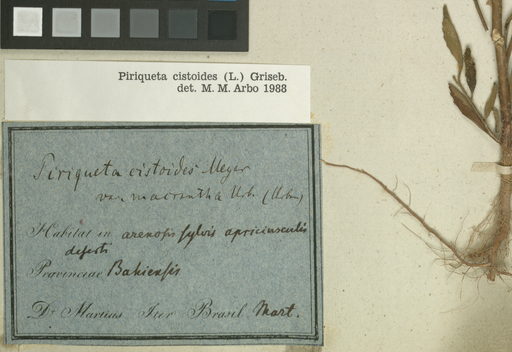 Piriqueta cistoides (L.) Griseb.
det. M. M. Arbo 1988
Piriqueta cistoides Meyer
var. macrantha Urb. (Urban)
Habitat in arenosis sylvis apriciusculis
deserti
Provinciae Bahiensis
Dr Martius Iter Brasil. Mart.